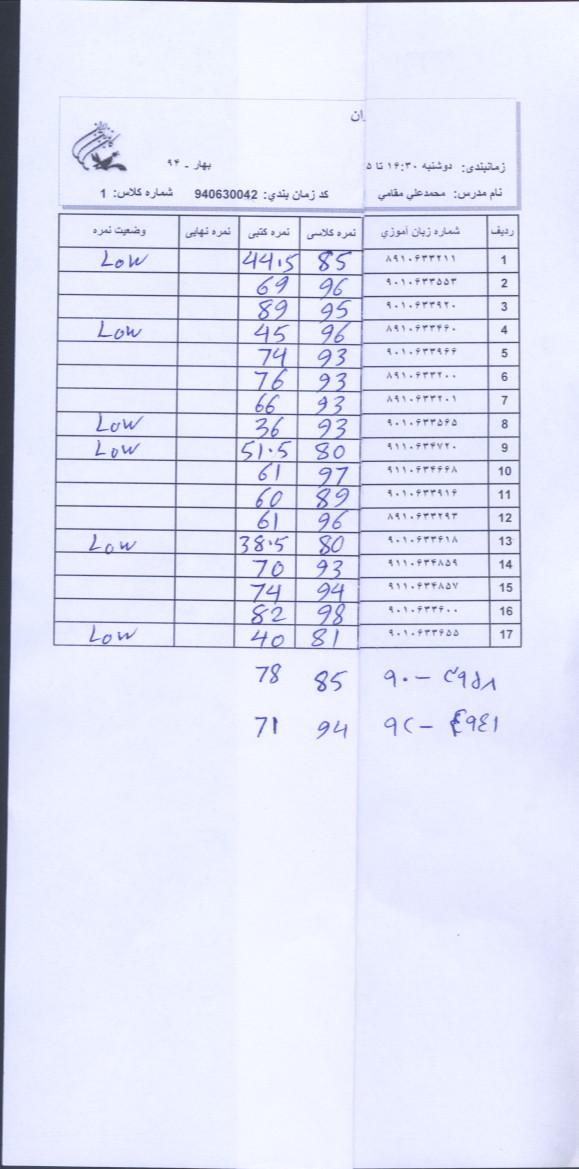 ان
زمانبندی: دوشنبه ۱۴:۳۰ تا ۵ بهار - ۹۴
نام مدرس: محمدعلي مقامي کد زمان بندي: 940630042 شماره کلاس: 1
ردیف شماره زبان آموزي نمره کلاسی نمره کتبی نمره نهایی وضعیت نمره
1 ۸۹۱۰۶۳۳۲۱۱ 85 44.5 Low
2 ۹۰۱۰۶۳۳۵۵۳ 96 69
3 ۹۰۱۰۶۳۳۹۲۰ 95 89
4 ۸۹۱۰۶۳۳۴۶۰ 96 45 Low
5 ۹۰۱۰۶۳۳۹۶۶ 93 74
6 ۸۹۱۰۶۳۳۲۰۰ 93 76
7 ۸۹۱۰۶۳۳۲۰۱ 93 66
8 ۹۰۱۰۶۳۳۵۶۵ 93 36 Low
9 ۹۱۱۰۶۳۴۷۲۰ 80 51.5 Low
10 ۹۱۱۰۶۳۴۶۶۸ 97 61
11 ۹۰۱۰۶۳۳۹۱۶ 89 60
12 ۸۹۱۰۶۳۳۲۹۳ 96 61
13 ۹۰۱۰۶۳۳۶۱۸ 80 38.5 Low
14 ۹۱۱۰۶۳۴۸۵۹ 93 70
15 ۹۱۱۰۶۳۴۸۵۷ 94 74
16 ۹۰۱۰۶۳۳۶۰۰ 98 82
17 ۹۰۱۰۶۳۳۶۵۵ 81 40 Low
۹۰ - 85 78
94 71